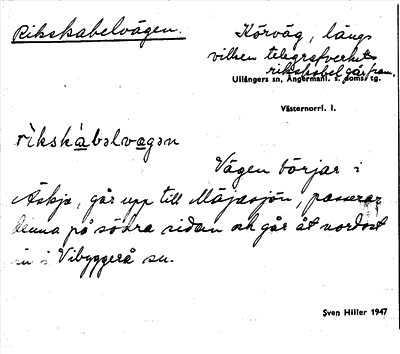 Rikskabelvägen.
Körväg, längs
vilken telegrafverkets
rikskabel går fram.
Ullångers sn, Ångermanl. s. doms. tg.
Västernorrl. l.
rikskabəlvagən
Vägen börjar i
Äskja, går upp till Mäjasjön, passerar
denna på södra sidan och går åt nordost
in i Vibyggerå sn.
Sven Hiller 1947